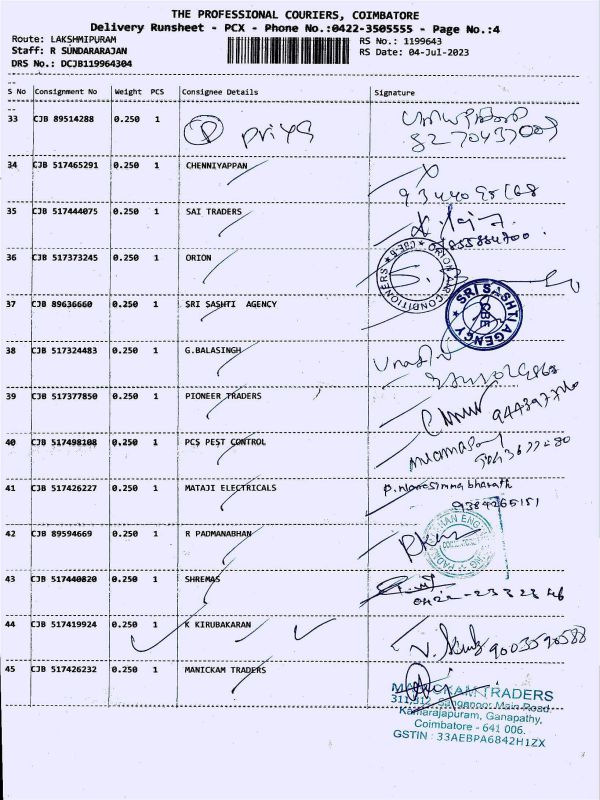 THE PROFESSIONAL COURIERS, COIMBATORE
Delivery Runsheet - PCX - Phone No.:0422-3505555 - Page No.:4
Route: LAKSHMIPURAM
RS No.: 1199643
Staff: R SUNDARARAJAN
RS Date: 04-Jul-2023
DRS No.: DCJB119964304
S No Consignment No Weight PCS Consignee Details Signature
33 CJB 89514288 0.250 1 P priya
8270437009
34 CJB 517465291 0.250 1 CHENNIYAPPAN
35 CJB 517444075 0.250 1 SAI TRADERS
36 CJB 517373245 0.250 1 ORION
ORION AIR CONDITIONERS * CBE-6 *
37 CJB 89636660 0.250 1 SRI SASHTI AGENCY
* SRI SASHTI AGENCY * CBE
38 CJB 517324483 0.250 1 G.BALASINGH
39 CJB 517377850 0.250 1 PIONEER TRADERS
40 CJB 517498108 0.250 1 PCS PEST CONTROL
41 CJB 517426227 0.250 1 MATAJI ELECTRICALS
9384265151
42 CJB 89594669 0.250 1 R PADMANABHAN
43 CJB 517440820 0.250 1 SHREMAS
0422-2332346
44 CJB 517419924 0.250 1 K KIRUBAKARAN
9003590588
45 CJB 517426232 0.250 1 MANICKAM TRADERS
MANICKAM TRADERS
311,312, Sanganoor Main Road,
Kamarajapuram, Ganapathy,
Coimbatore - 641 006.
GSTIN : 33AEBPA6842H1ZX